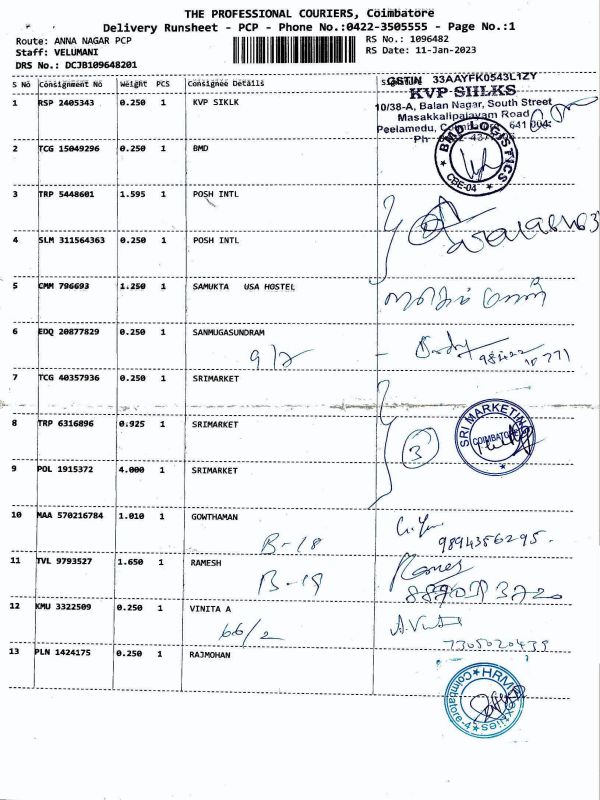 THE PROFESSIONAL COURIERS, Coimbatore
Delivery Runsheet - PCP - Phone No.:0422-3505555 - Page No.:1
Route: ANNA NAGAR PCP
RS No.: 1096482
Staff: VELUMANI
RS Date: 11-Jan-2023
DRS No.: DCJB109648201
S No Consignment No Weight PCS Consignee Details
GSTIN 33AAYFK0543L1ZY
KVP-SIHLKS
10/38-A, Balan Nagar, South Street
Masakkalipalayam Road
Peelamedu, 641 004
Ph
1 RSP 2405343 0.250 1 KVP SIKLK
2 TCG 15049296 0.250 1 BMD
BMD LOGISTICS
CBE-04
3 TRP 5448601 1.595 1 POSH INTL
4 SLM 311564363 0.250 1 POSH INTL
5 CMM 796693 1.250 1 SAMUKTA USA HOSTEL
6 EDQ 20877829 0.250 1 SANMUGASUNDRAM
9/7
7 TCG 40357936 0.250 1 SRIMARKET
8 TRP 6316896 0.925 1 SRIMARKET
3
SRI MARKETING
COIMBATORE
9 POL 1915372 4.000 1 SRIMARKET
10 MAA 570216784 1.010 1 GOWTHAMAN
B-18
9894356295.
11 TVL 9793527 1.650 1 RAMESH
B-19
Rames
12 KMU 3322509 0.250 1 VINITA A
66/2
7305020439
13 PLN 1424175 0.250 1 RAJMOHAN
HRM Textiles
Coimbatore-4